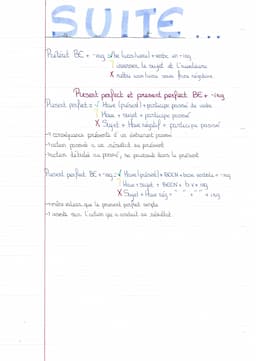 SUITE...
Prétérit BE + -ing: √ Be (was/were) + verbe en -ing
? inverser le sujet et l'auxiliaire
X mettre was/were sous forme négative
Present perfect et present perfect BE + -ing
Present perfect = √ Have (présent) + participe passé du verbe
? Have + sujet + participe passé
X Sujet + Have négatif + participe passé
→ conséquence présente d'un événement passé
→ action passée a un résultat au présent
→ action débutée au passé, se poursuit dans le présent
Present perfect BE + -ing = √ Have (présent) + BEEN + base verbale + -ing
? Have + sujet + BEEN + bv + ing
X Sujet + Have nég + " " + " " + ing
→ même valeur que le present perfect simple
→ insiste sur l'action qui a conduit au résultat